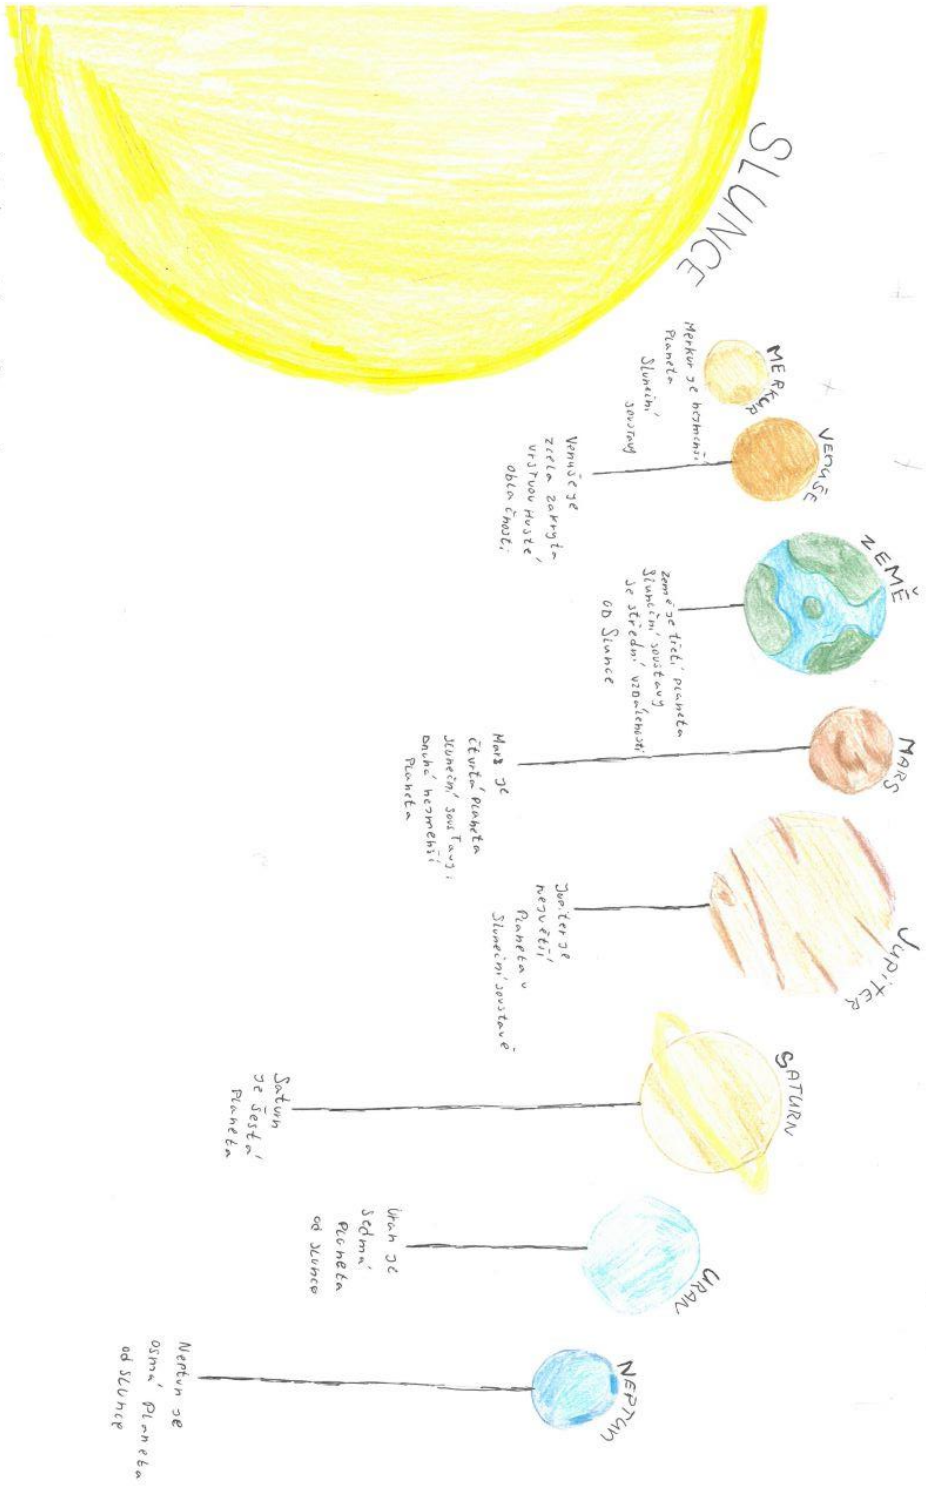 SLUNCE
MERKUR
Merkur je nejmenší
Planeta
Sluneční
soustavy
VENUŠE
Venuše je
zcela zakryta
vrstvou husté
oblačnosti
ZEMĚ
země je třetí planeta
Sluneční soustavy
se střední vzdáleností
OD Slunce
MARS
Mars je
čtvrtá Planeta
sluneční soustavy i
druhá nejmenší
Planeta
JUPITER
Jupiter je
největší
Planeta v
Sluneční soustavě
SATURN
Saturn
je šestá
Planeta
URAN
Uran je
sedmá
Planeta
od slunce
NEPTUN
Neptun je
osmá Planeta
od slunce